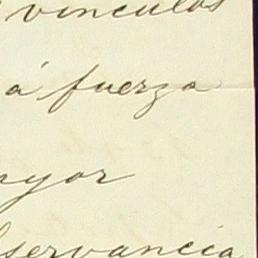 vinculos
á fuerza
ayor
servancia